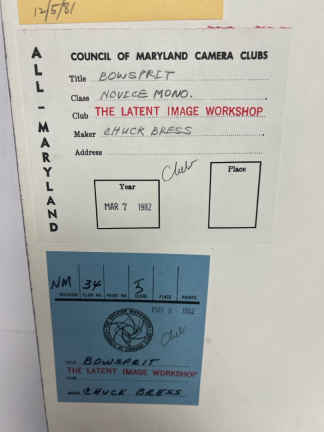 12/5/81
ALL-MARYLAND
COUNCIL OF MARYLAND CAMERA CLUBS
Title BOWSPRIT
Class NOVICE MONO.
Club THE LATENT IMAGE WORKSHOP
Maker CHUCK BRESS
Address
Club
Year
Place
MAR 7 1982
NM 34 5
DIVISION CLUB NO. CLASS PLACE POINTS
1982
Club
TITLE BOWSPRIT
THE LATENT IMAGE WORKSHOP
CHUCK BRESS